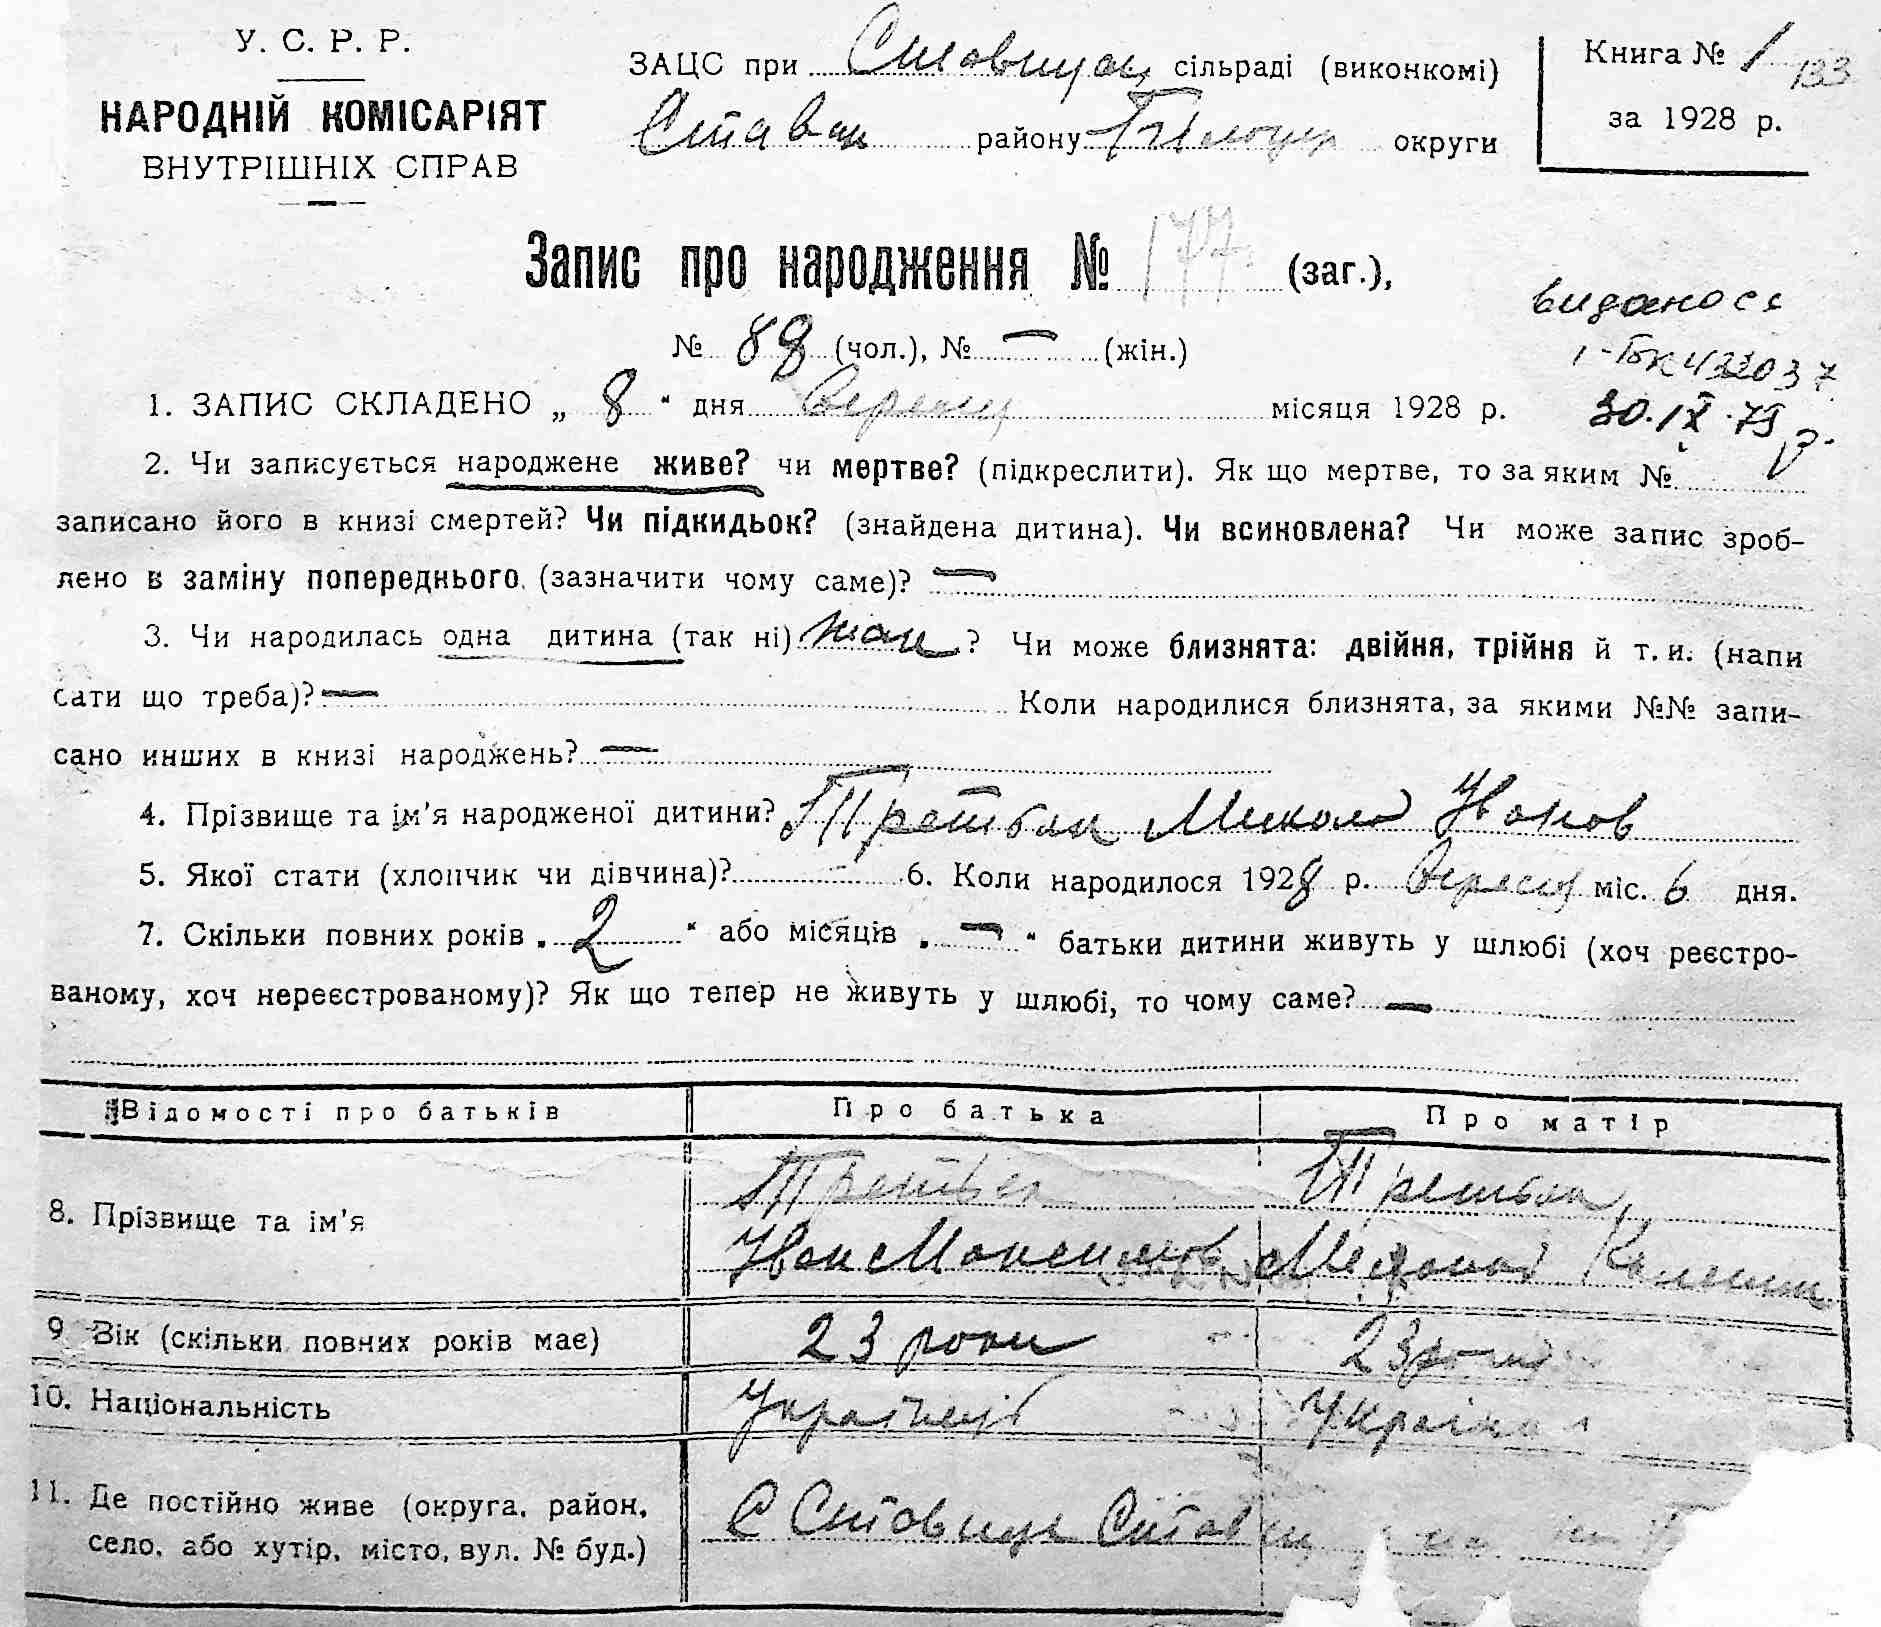 У. С. Р. Р.
НАРОДНІЙ КОМІСАРІЯТ
ВНУТРІШНІХ СПРАВ
ЗАЦС при Ставищан сільраді (виконкомі)
Ставищ району Білоцер округи
Книга № 1 133
за 1928 р.
Запис про народження № 177 (заг.),
№ 88 (чол.), № — (жін.)
видано св
30.IX.79 р.
1. ЗАПИС СКЛАДЕНО „ 8 " дня Вересня місяця 1928 р.
2. Чи записується народжене живе? чи мертве? (підкреслити). Як що мертве, то за яким №
записано його в книзі смертей? Чи підкидьок? (знайдена дитина). Чи всиновлена? Чи може запис зроб-
лено в заміну попереднього (зазначити чому саме)? —
3. Чи народилась одна дитина (так ні) так ? Чи може близнята: двійня, трійня й т. и. (напи
сати що треба)? — Коли народилися близнята, за якими №№ запи-
сано инших в книзі народжень? —
4. Прізвище та ім'я народженої дитини? Третьяк Микола Іванов
5. Якої стати (хлопчик чи дівчина)? 6. Коли народилося 1928 р. Вересня міс. 6 дня.
7. Скільки повних років „ 2 " або місяців „ — " батьки дитини живуть у шлюбі (хоч реєстро-
ваному, хоч нереєстрованому)? Як що тепер не живуть у шлюбі, то чому саме? —
Відомості про батьків Про батька Про матір
8. Прізвище та ім'я
Третьяк Третьяк
Іван
9. Вік (скільки повних років має) 23 роки 23 роки
10. Національність Українець Україн
11. Де постійно живе (округа, район,
село, або хутір, місто, вул. № буд.)
С Ставище Ставищ